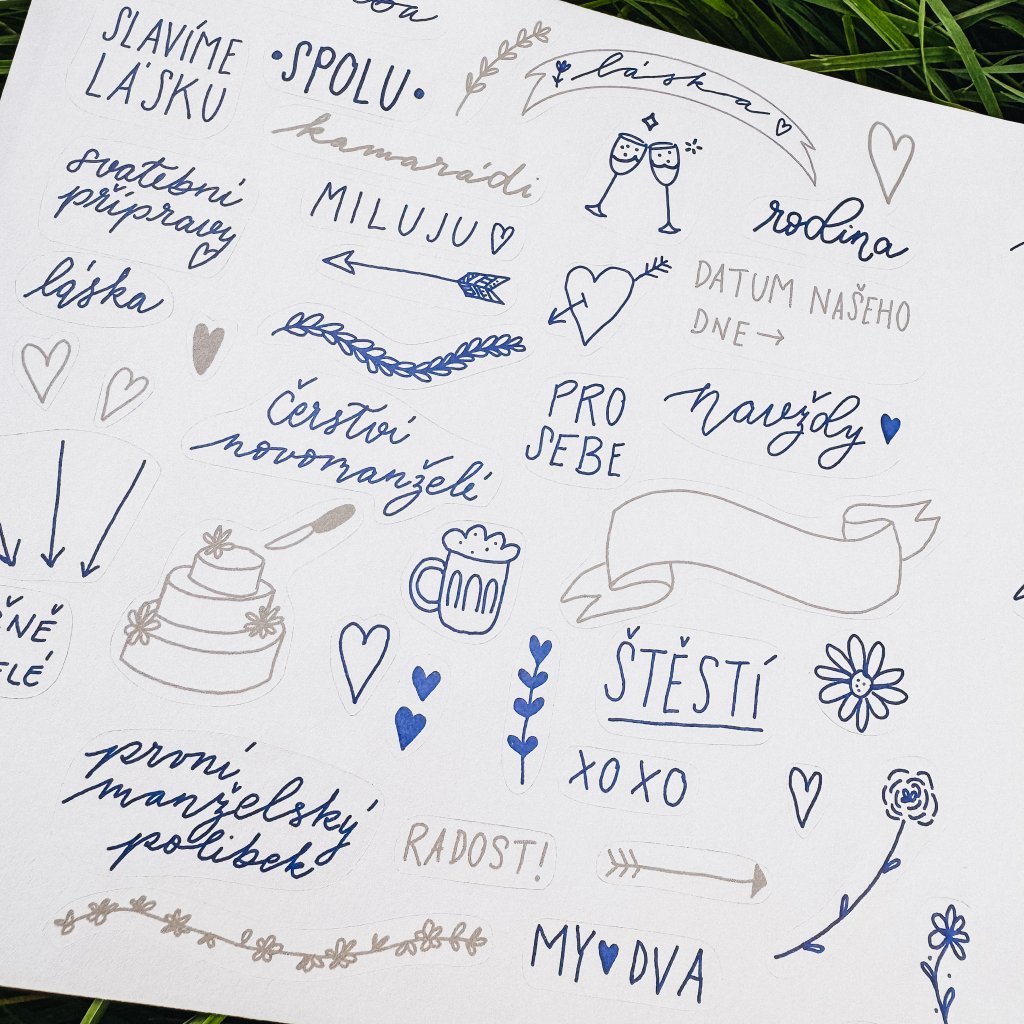 SLAVÍME
LÁSKU
•SPOLU•
láska
kamarádi
svatební
přípravy
MILUJU
rodina
láska
DATUM NAŠEHO
DNE →
čerství
novomanželé
PRO
SEBE
navždy
ŠTĚSTÍ
XOXO
první
manželský
polibek
RADOST!
MY DVA